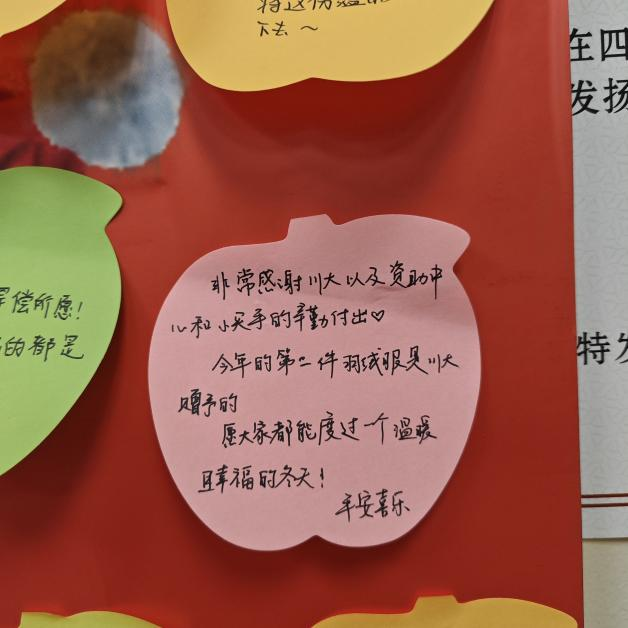 将这份温
下去～
在四
发扬
偿所愿!
的都是
非常感谢川大以及资助中
心和小买手的辛勤付出♡
今年的第二件羽绒服是川大
赠予的
愿大家都能度过一个温暖
且幸福的冬天!
平安喜乐
特发